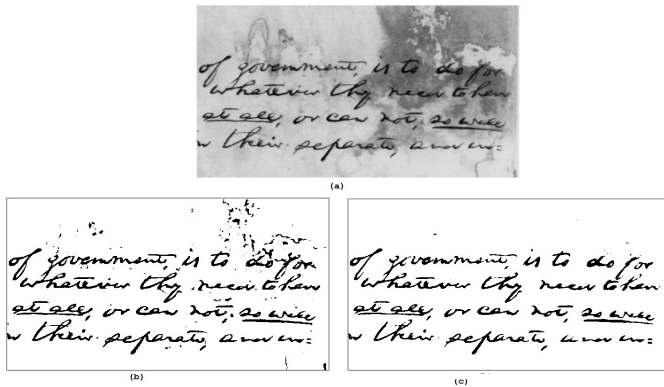 of government, is to do for
whatever they need to have
at all, or can not, so well
their separate, and in=
(a)
of government, is to do for
whatever they need to have
at all, or can not, so well
their separate, and in=
(b)
of government, is to do for
whatever they need to have
at all, or can not, so well
their separate, and in=
(c)